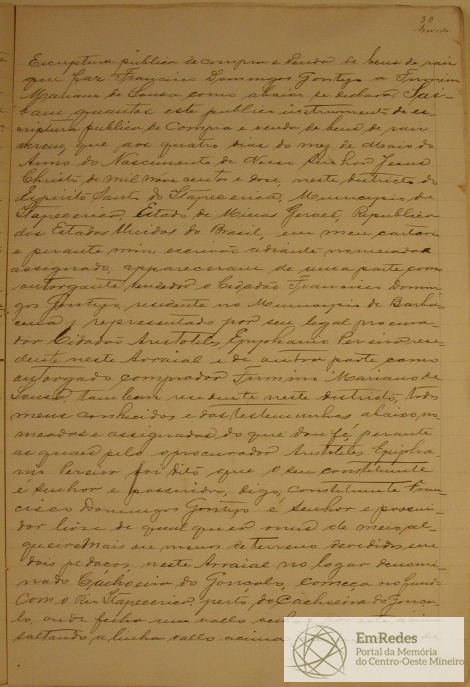 30
Escriptura publica de compra e venda de bens de raiz
que faz Francisco Domingos Gontijo a Firmino
Mariano de Sousa como abaixo se declara. Sai-
bam quantos este publico instrumento de es-
criptura publica de compra e venda de bens de raiz
virem, que aos quatro dias do mez de Maio do
Anno do Nascimento de Nosso Senhor Jesus
Christo de mil nove centos e dose, neste districto do
Espirito Santo do Itapecerica, Municipio de
Itapecerica, Estado de Minas Geraes, Republica
dos Estados Unidos do Brasil, em meu cartorio
e perante mim escrivão adiante nomeado e
assignado, appareceram de uma parte como
outorgante vendedor o Cidadão Francisco Domin-
gos Gontijo, residente no Municipio de Barba-
cena, representado por seu legal procura-
dor Cidadão Aristoteles Epiphanio Pereira resi-
dente neste Arraial e de outra parte como
outorgado comprador Firmino Mariano de
Sousa, tambem residente neste districto, todos
meus conhecidos e das testemunhas abaixo no-
meadas e assignadas do que dou fé, perante
as quaes pelo o procurador Aristoteles Epipha-
nio Pereira foi dito que o seu constituinte
é senhor e possuidor, digo, constituinte Fran-
cisco Domingos Gontijo é senhor e possui-
dor livre de qualquer onus de meio al-
queire mais ou menos de terreno devididos em
dois pedaços, neste Arraial no logar denomi-
nado Cachoeira do Gonçalo, começa no fundo
com o Rio Itapecerica, perto da Cachoeira do Gonça-
lo, onde fecha um vallo
saltando a linha vallo acima
EmRedes
Portal da Memória
do Centro-Oeste Mineiro